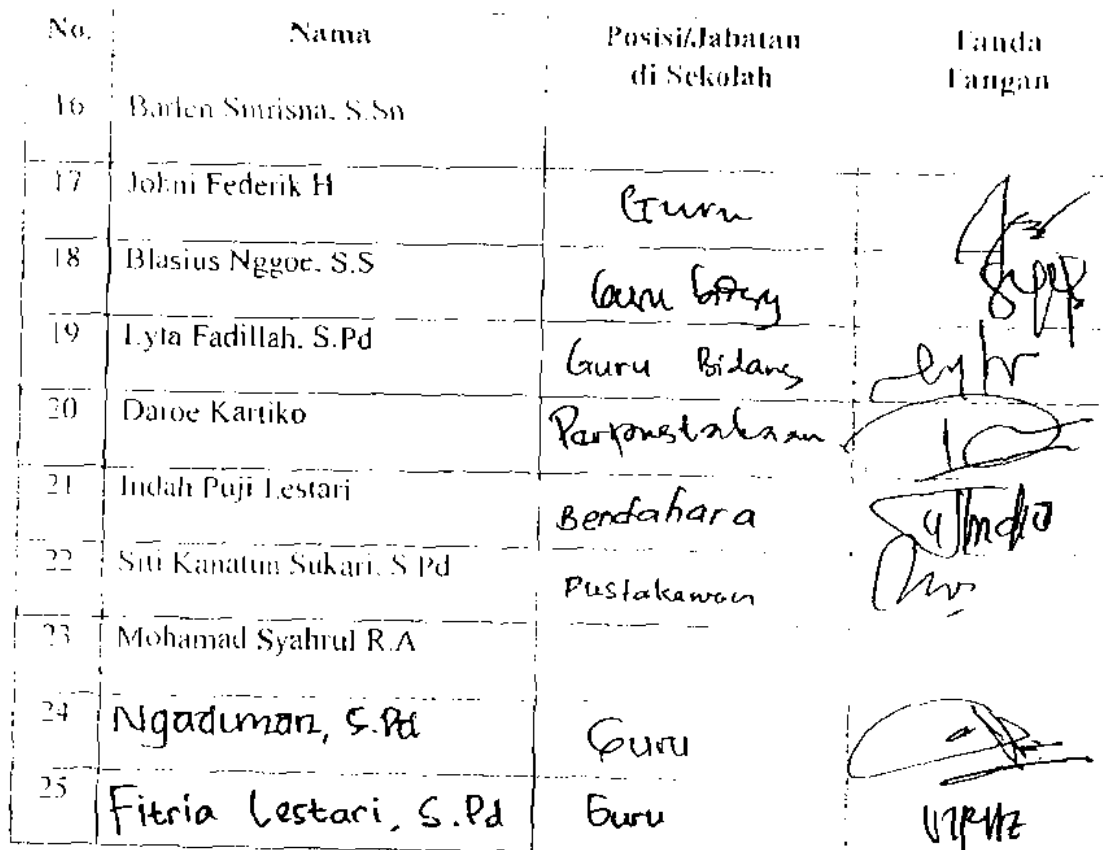 No. Nama Posisi/Jabatan di Sekolah Tanda Tangan
16 Barlen Sutrisna, S.Sn
17 Johni Federik H Guru
18 Blasius Nggoe, S.S Guru
19 Lyta Fadillah, S.Pd Guru Bidang
20 Daroe Kartiko Perpustakaan
21 Indah Puji Lestari Bendahara
22 Siti Kanatun Sukari, S.Pd Pustakawan
23 Mohamad Syahrul R.A
24 Ngadiman, S.Pd Guru
25 Fitria Lestari, S.Pd Guru